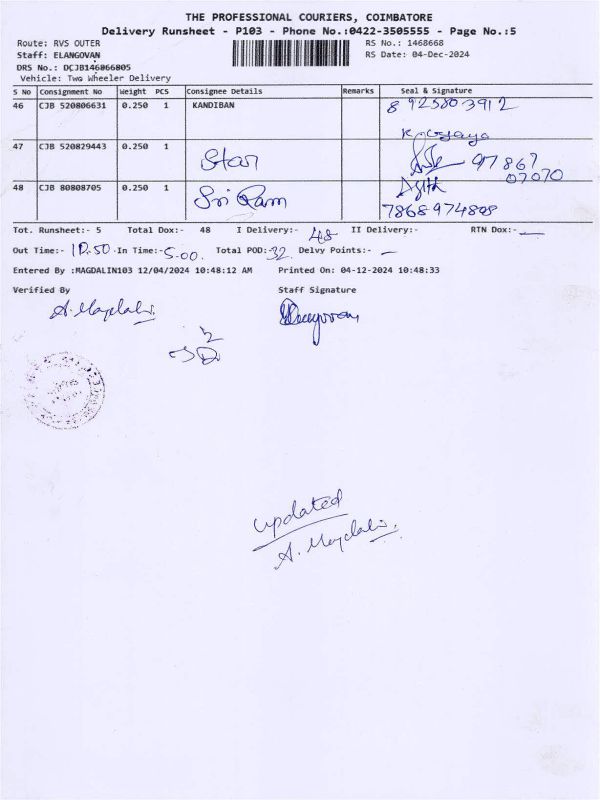 THE PROFESSIONAL COURIERS, COIMBATORE
Delivery Runsheet - P103 - Phone No.:0422-3505555 - Page No.:5
Route: RVS OUTER
RS No.: 1468668
Staff: ELANGOVAN
RS Date: 04-Dec-2024
DRS No.: DCJB146866805
Vehicle: Two Wheeler Delivery
S No Consignment No Weight PCS Consignee Details Remarks Seal & Signature
46 CJB 520806631 0.250 1 KANDIBAN 8925803912
47 CJB 520829443 0.250 1 Star 97867
07070
48 CJB 80808705 0.250 1 Sri Ram Ajith
7868974808
Tot. Runsheet:- 5 Total Dox:- 48 I Delivery:- 48 II Delivery:- RTN Dox:- —
Out Time:- 10.50 In Time:- 5.00. Total POD:- 32 Delvy Points:- —
Entered By :MAGDALIN103 12/04/2024 10:48:12 AM Printed On: 04-12-2024 10:48:33
Verified By Staff Signature
A. Magdalin
Elangovan
updated
A. Magdalin